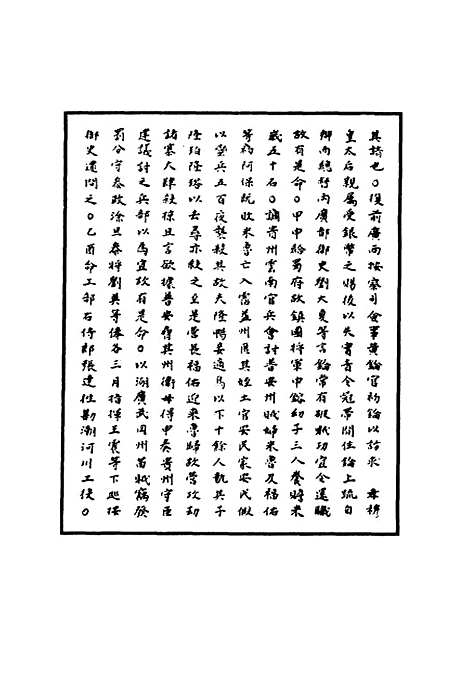 其請也○復前廣西按察司僉事黃鑰官初鑰以請求 孝穆
皇太后親屬受銀幣之賜後以失實者令冠帶閒住鑰上疏自
辯而總督兩廣都御史劉大夏等言鑰常有擒賊功宜令還職
故有是命○甲申給蜀府故鎮國將軍申鎴幼子三人養贍米
歲五十石○調貴州雲南官兵會討普安州賊婦米魯及福佑
等初阿保既收米魯亡入霑益州匿其姪土官安民家安民俶
以蠻兵五百夜襲殺其故夫隆暢妾適烏以下十餘人執其子
隆珀隆珞以去尋亦殺之至是營長福佑迎米魯歸故營攻劫
諸寨人肆殺掠且言欲據普安脅其州衛毋得申奏貴州守臣
建議討之兵部以為宜故有是命○以湖廣武岡州苗賊竊發
罰分守參政徐旦參將劉英等俸各三月指揮王震等下巡按
御史逮問之○乙酉命工部右侍郎張達往勘潮河川工役○